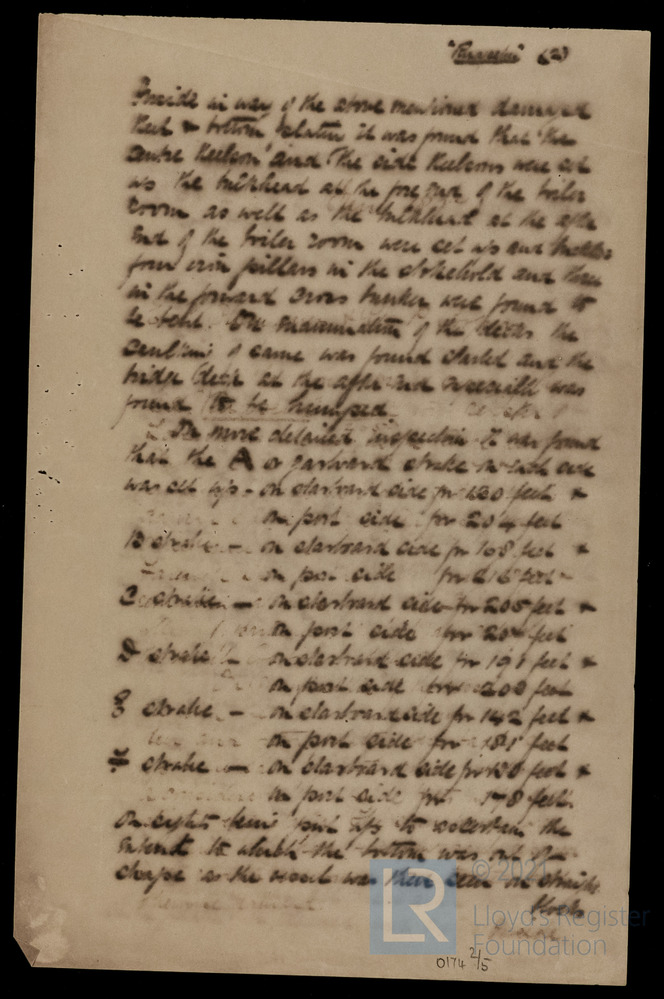 (3)
Inside in way of the above mentioned damaged
keel & bottom plates it was found that the
centre keelson and the side keelsons were set
up the bulkhead at the fore end of the boiler
room as well as the bulkhead at the after
end of the boiler room were set up and buckled
four iron pillars in the stokehold and three
in the forward cross bunker were found to
be bent. On examination of the decks the
caulking of same was found started and the
bridge deck at the after end especially was
found to be humped.
On more detailed inspection it was found
that the A or garboard strake on each side
was set up - on starboard side for feet &
on port side for 204 feet
B strake - on starboard side for 168 feet &
on port side for feet
C strake - on starboard side for 205 feet &
on port side for feet
D strake - on starboard side for 191 feet &
on port side for 200 feet
E strake - on starboard side for 142 feet &
on port side for 181 feet
F strake - on starboard side for feet &
on port side for 178 feet.
to ascertain the
extent to which the bottom was out of
shape as the vessel was there been on straight
blocks
© 2021
LR
Lloyd's Register
Foundation
0174 2/5